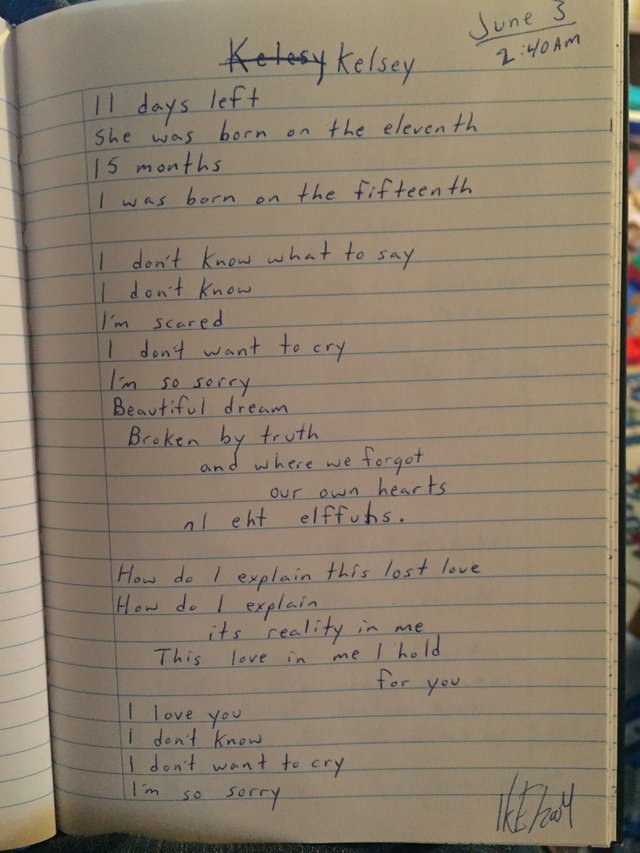 June 3
2:40 AM
Kelesy Kelsey
11 days left
She was born on the eleventh
15 months
I was born on the fifteenth
I don't know what to say
I don't know
I'm scared
I don't want to cry
I'm so sorry
Beautiful dream
Broken by truth
and where we forgot
our own hearts
nI eht elffuhs.
How do I explain this lost love
How do I explain
its reality in me
This love in me I hold
for you
I love you
I don't know
I don't want to cry
I'm so sorry